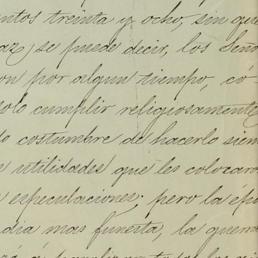 ntos treinta y ocho, sin que
se puede decir, los Seño
on por algun tiempo, có
olo cumplir religiosamente
costumbre de hacerlo siem
utilidades que les colocaro
especulaciones; pero la épo
dia mas funesta, la guerra